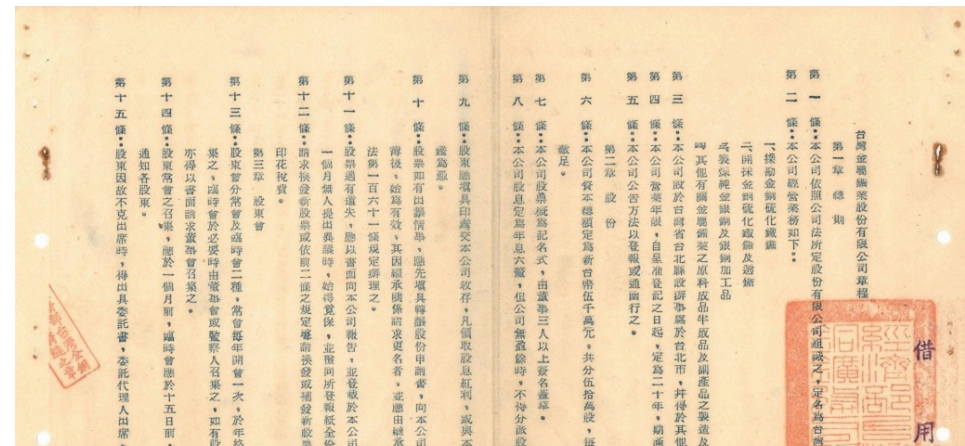 台灣金屬鑛業股份有限公司章程
第一章 總則
第一條：本公司依照公司法所定股份有限公司組織之，定名爲台灣
第二條：本公司經營業務如下：
一、探勘金銅硫化鐵鑛
二、開採金銅硫化鐵鑛及選鑛
三、製煉純金銀銅及銀銅加工品
其他有關金屬鑛業之原料成品半成品及副產品之製造及
第三條：本公司設於台灣省台北縣設辦事處於台北市，幷得於其他
第四條：本公司營業年限，自呈准登記之日起，定爲二十年，期滿
第五條：本公司公告方法以登報或通函行之。
第二章 股份
第六條：本公司資本總額定爲新台幣伍千萬元，共分伍拾萬股，每
足。
第七條：本公司股票概爲記名式，由董事三人以上簽名蓋章。
第八條：本公司股息定爲年息六釐，但公司無盈餘時，不得分派股
第九條：股東應塡具印鑑交本公司收存，凡領取股息紅利，或與本
鑑爲憑。
第十條：股票如有出讓情事，應先塡具轉讓股份申請書，向本公司
簿後，始爲有效，其因繼承關係請求更名者，並應由繼承
法第一百六十一條規定辦理之。
第十一條：股票遇有遺失，應以書面向本公司報告，並登載於本公司
一個月無人提出異議時，始得覓保，並檢同所登報紙全份
第十二條：請求換發新股票或依前二條之規定請換發或補發新股票
印花稅費。
第三章 股東會
第十三條：股東會分常會及臨時會二種，常會每年開會一次，於年終
集之，臨時會於必要時由董事會或監察人召集之，如有股
亦得以書面請求董事會召集之。
第十四條：股東常會之召集，應於一個月前，臨時會應於十五日前，
通知各股東。
第十五條：股東因故不克出席時，得出具委託書，委託代理人出席，
借用